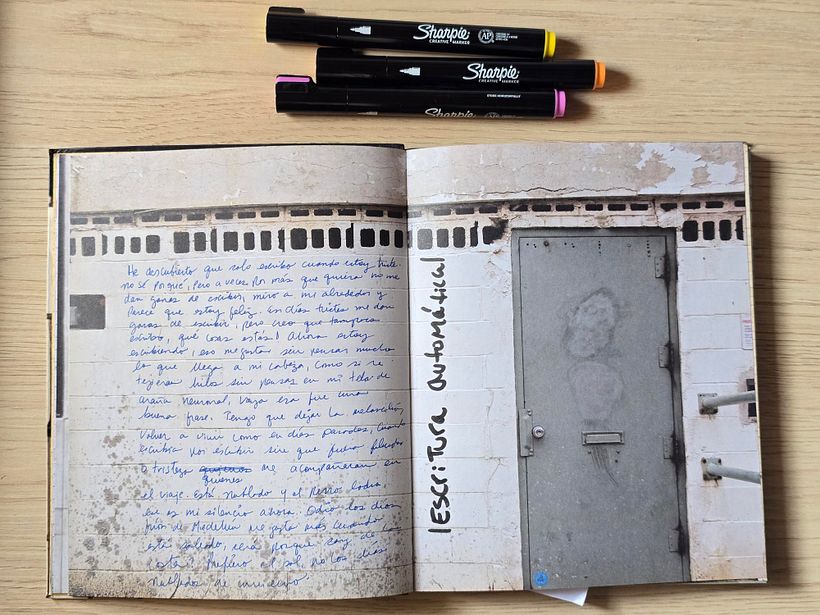 Sharpie
CREATIVE MARKER
AP
Sharpie
CREATIVE MARKER
Sharpie
AP
He descubierto que solo escribo cuando estoy triste.
no sé porque, pero a veces por más que quiera no me
dan ganas de escribir, miro a mi alrededor y
parece que estoy feliz. En días tristes me dan
ganas de escribir, pero creo que tampoco
escribo, qué cosas estás! Ahora estoy
escribiendo, eso me gusta, sin pensar mucho
lo que llega a mi cabeza, como si se
tejieran hilos sin pensar en mi tela de
araña neuronal, vaya esa fue una
buena frase. Tengo que dejar la
volver a vivir como en días pasados, cuando
escribía por escribir sin que fuera
o tristeza quienes me acompañaran en
el viaje. Está nublado y el perro ladra,
en mi silencio ahora. Odio los días
fríos de Medellín me gusta más cuando
está soleado, será porque soy de la
costa? Prefiero el sol no los días
nublados de invierno.
¡Escritura automática!
A